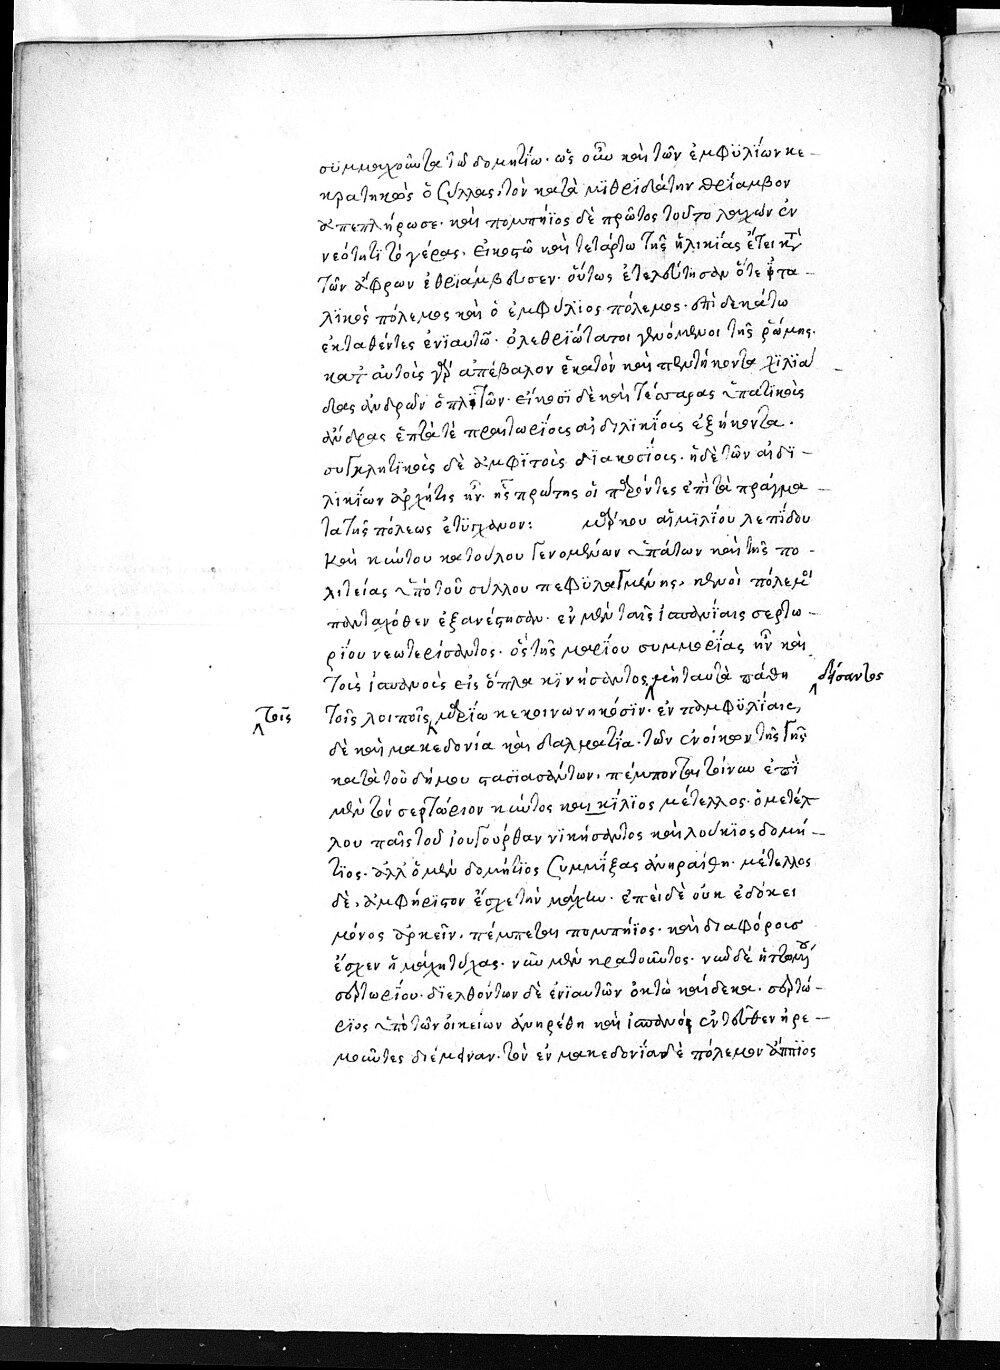 συμμαχοῦντα τῶ δομητίω· ὡς οὖν καὶ τῶν ἐμφϋλΐων κε-
κρατηκὼς ὁ σύλλας, τὸν κατὰ μϊθριδάτην θρίαμβον
ἀπεπλήρωσε· καὶ πομπήϊος δὲ πρῶτος τοῦτο λαχὼν ἐν
νεότητι τὸ γέρας, εἰκοστῶ καὶ τετάρτω τῆς ἡλικίας ἔτει κατὰ
τῶν ἄφρων ἐθριάμβευσεν· οὕτως ἐτελεύτησαν ὅτε ἰτα-
λϊκὸς πόλεμος καὶ ὁ ἐμφύλϊος πόλεμος· ἐπὶ δεκάτω
ἐκταθέντες ἐνϊαυτῶ· ὀλεθριώτατοι γενόμενοι τῆς ῥώμης·
κατ αὐτοὺς γὰρ ἀπέβαλον ἑκατὸν καὶ πεντήκοντα χϊλϊά
δας ἀνδρῶν ὁπλϊτῶν· εἴκοσϊ δὲ καὶ τέσσαρας ὑπατϊκοὺς
ἄνδρας ἑπτά τὲ πραιτωρΐους αἰδιλϊκΐους ἑξήκοντα·
συγκλητϊκοὺς δὲ ἀμφὶ τοὺς δϊακοσΐους· ἡ δὲ τῶν αἰδϊ-
λικΐων ἀρχή τϊς ἦν· ἧς πρώτης οἱ παρόντες ἐπὶ τὰ πράγμα-
τα τῆς πόλεως ἐτύγχανον: μάρκου αἰμϊλίου λεπΐδου
καὶ κοΐντου κατούλου γενομένων ὑπάτων καὶ τῆς πο-
λιτείας ὑπὸ τοῦ σύλλου πεφϋλαγμένης, κενοὶ πόλεμοι
πανταχόθεν ἐξανέστησαν· ἐν μὲν ταῖς ἱσπανΐαις σερτω-
ρΐου νεωτερίσαντος· ὃς τῆς μαρΐου συμμορΐας ἦν καὶ
τοὺς ἱσπανοὺς εἰς ὅπλα κϊνήσαντος, μὴ ταυτὰ πάθη δείσαντος
τοῖς τοῖς λοιποῖς μαρΐω κεκοινωνηκόσϊν· ἐν παμφϋλΐαις,
δὲ καὶ μακεδονία καὶ δαλματΐα· τῶν ἐνοίκων τῆς γῆς
κατὰ τοῦ δήμου στασϊασάντων, πέμπονται τοίνυν ἐπΐ
μὲν τὸν σερτώριον κοΐντος και κίλϊος μέτελλος· ὁ μετέλ
λου παῖς τοῦ ἰουγούρθαν νϊκήσαντος καὶ λούκϊος δομή-
τϊος· ἀλλ ὁ μὲν δομήτϊος συμμΐξας ἀνηραίθη· μέτελλος
δὲ, ἀμφήρϊστον ἔσχε τὴν μάχην· ἐπεὶ δὲ οὐκ ἐδόκει
μόνος ἀρκεῖν, πέμπεται πομπήϊος· καὶ διαφόρους
ἔσχεν ἡ μάχη τύχας· νῦν μὲν κρατοῦντος·
σερτωρΐου· δϊελθόντων δὲ ἐνϊαυτῶν ὀκτὼ καὶ δεκα· σερτώ-
ρϊος ὑπὸ τῶν οἰκείων ἀνηρέθη καὶ ἱσπανοὶ ἐντεῦθεν ἠρε-
μοῦντες διέμειναν· τὸν ἐν μακεδονΐα δὲ πόλεμον ἄππϊος